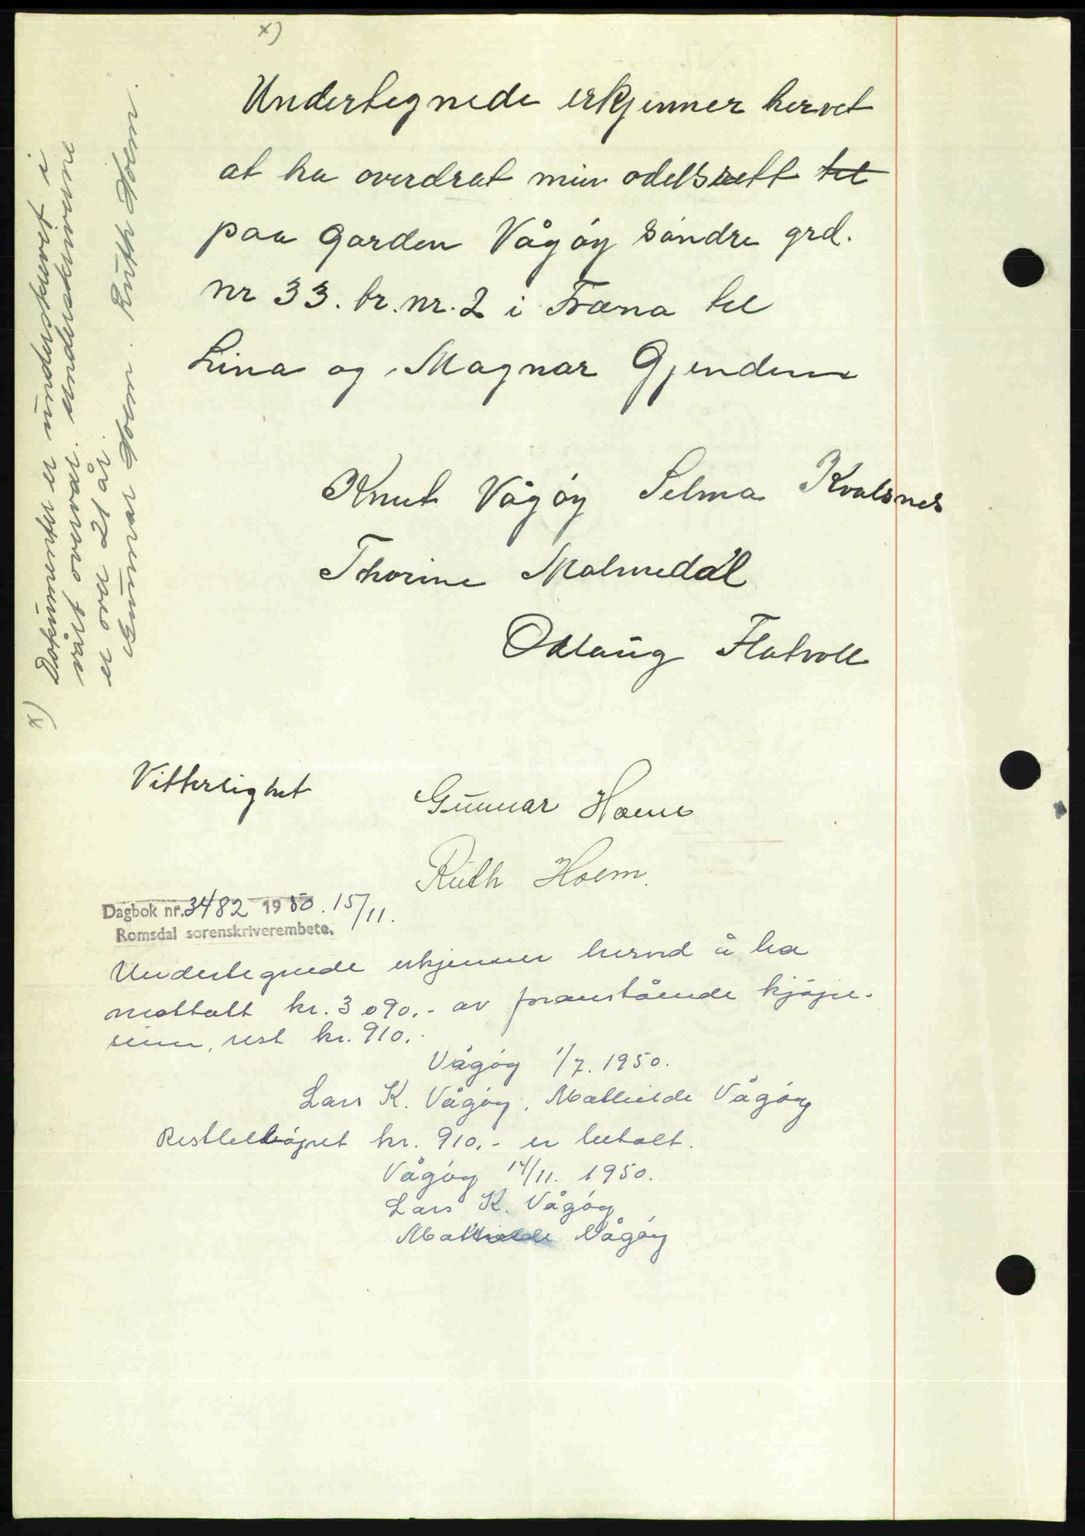 x)
Undertegnede erkjenner hervet
at ha overdrat min odelsrett til
paa garden Vågøy søndre grd.
nr 33. br. nr. 2 i Fræna til
Lina og Magnar Gjendem
Knut Vågøy Selma Kvalsnes
Thorine Malmedal
Odlaug Flatvoll
x) Dokumentet er underskrevet i
vårt overvær. underskriverne
er over 21 år.
Gunnar Hoem. Ruth Hoem.
Vitterlighet
Gunnar Hoem
Ruth Hoem.
Dagbok nr. 3482 1950. 15/11.
Romsdal sorenskriverembete.
Undertegnede erkjenner herved å ha
mottatt kr. 3090,- av foranstående kjøpe-
sum, rest kr. 910,-
Vågøy 1/7. 1950.
Lars K. Vågøy, Mathilde Vågøy
Restbeløpet kr. 910,- er betalt.
Vågøy 14/11. 1950.
Lars K. Vågøy
Mathilde Vågøy